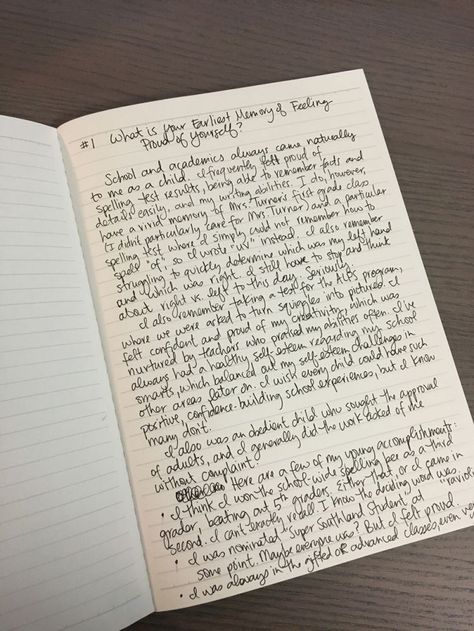 #1 What is Your Earliest Memory of Feeling
Proud of Yourself?
School and academics always came naturally
to me as a child. I frequently felt proud of
spelling test results, being able to remember facts and
details easily, and my writing abilities. I do, however,
have a vivid memory of Mrs. Turner's first grade class
(I didn't particularly care for Mrs. Turner) and a particular
spelling test where I simply could not remember how to
spell "of" so I wrote "uv" instead. I also remember
struggling to quickly determine which was my left hand
and which was right. I still have to stop and think
about right vs. left to this day. Seriously.
I also remember taking a test for the program,
where we were asked to turn squiggles into pictures. I
felt confident and proud of my creativity, which was
nurtured by teachers who praised my abilities often. I've
always had a healthy self-esteem regarding my school
smarts, which balanced out my self-esteem challenges in
other areas later on. I wish every child could have such
positive, confidence-building school experiences, but I know
many don't.
I also was an obedient child who sought the approval
of adults, and I generally did the work asked of me
without complaint.
Here are a few of my young accomplishments:
• I think I won the school-wide spelling bee as a third
grader, beating out 5th graders. Either that, or I came in
second. I can't exactly recall. I know the deciding word was
"ravioli
• I was nominated Super Southland Student, at
some point. Maybe everyone was? But I felt proud
• I was always in the gifted OR advanced classes, even